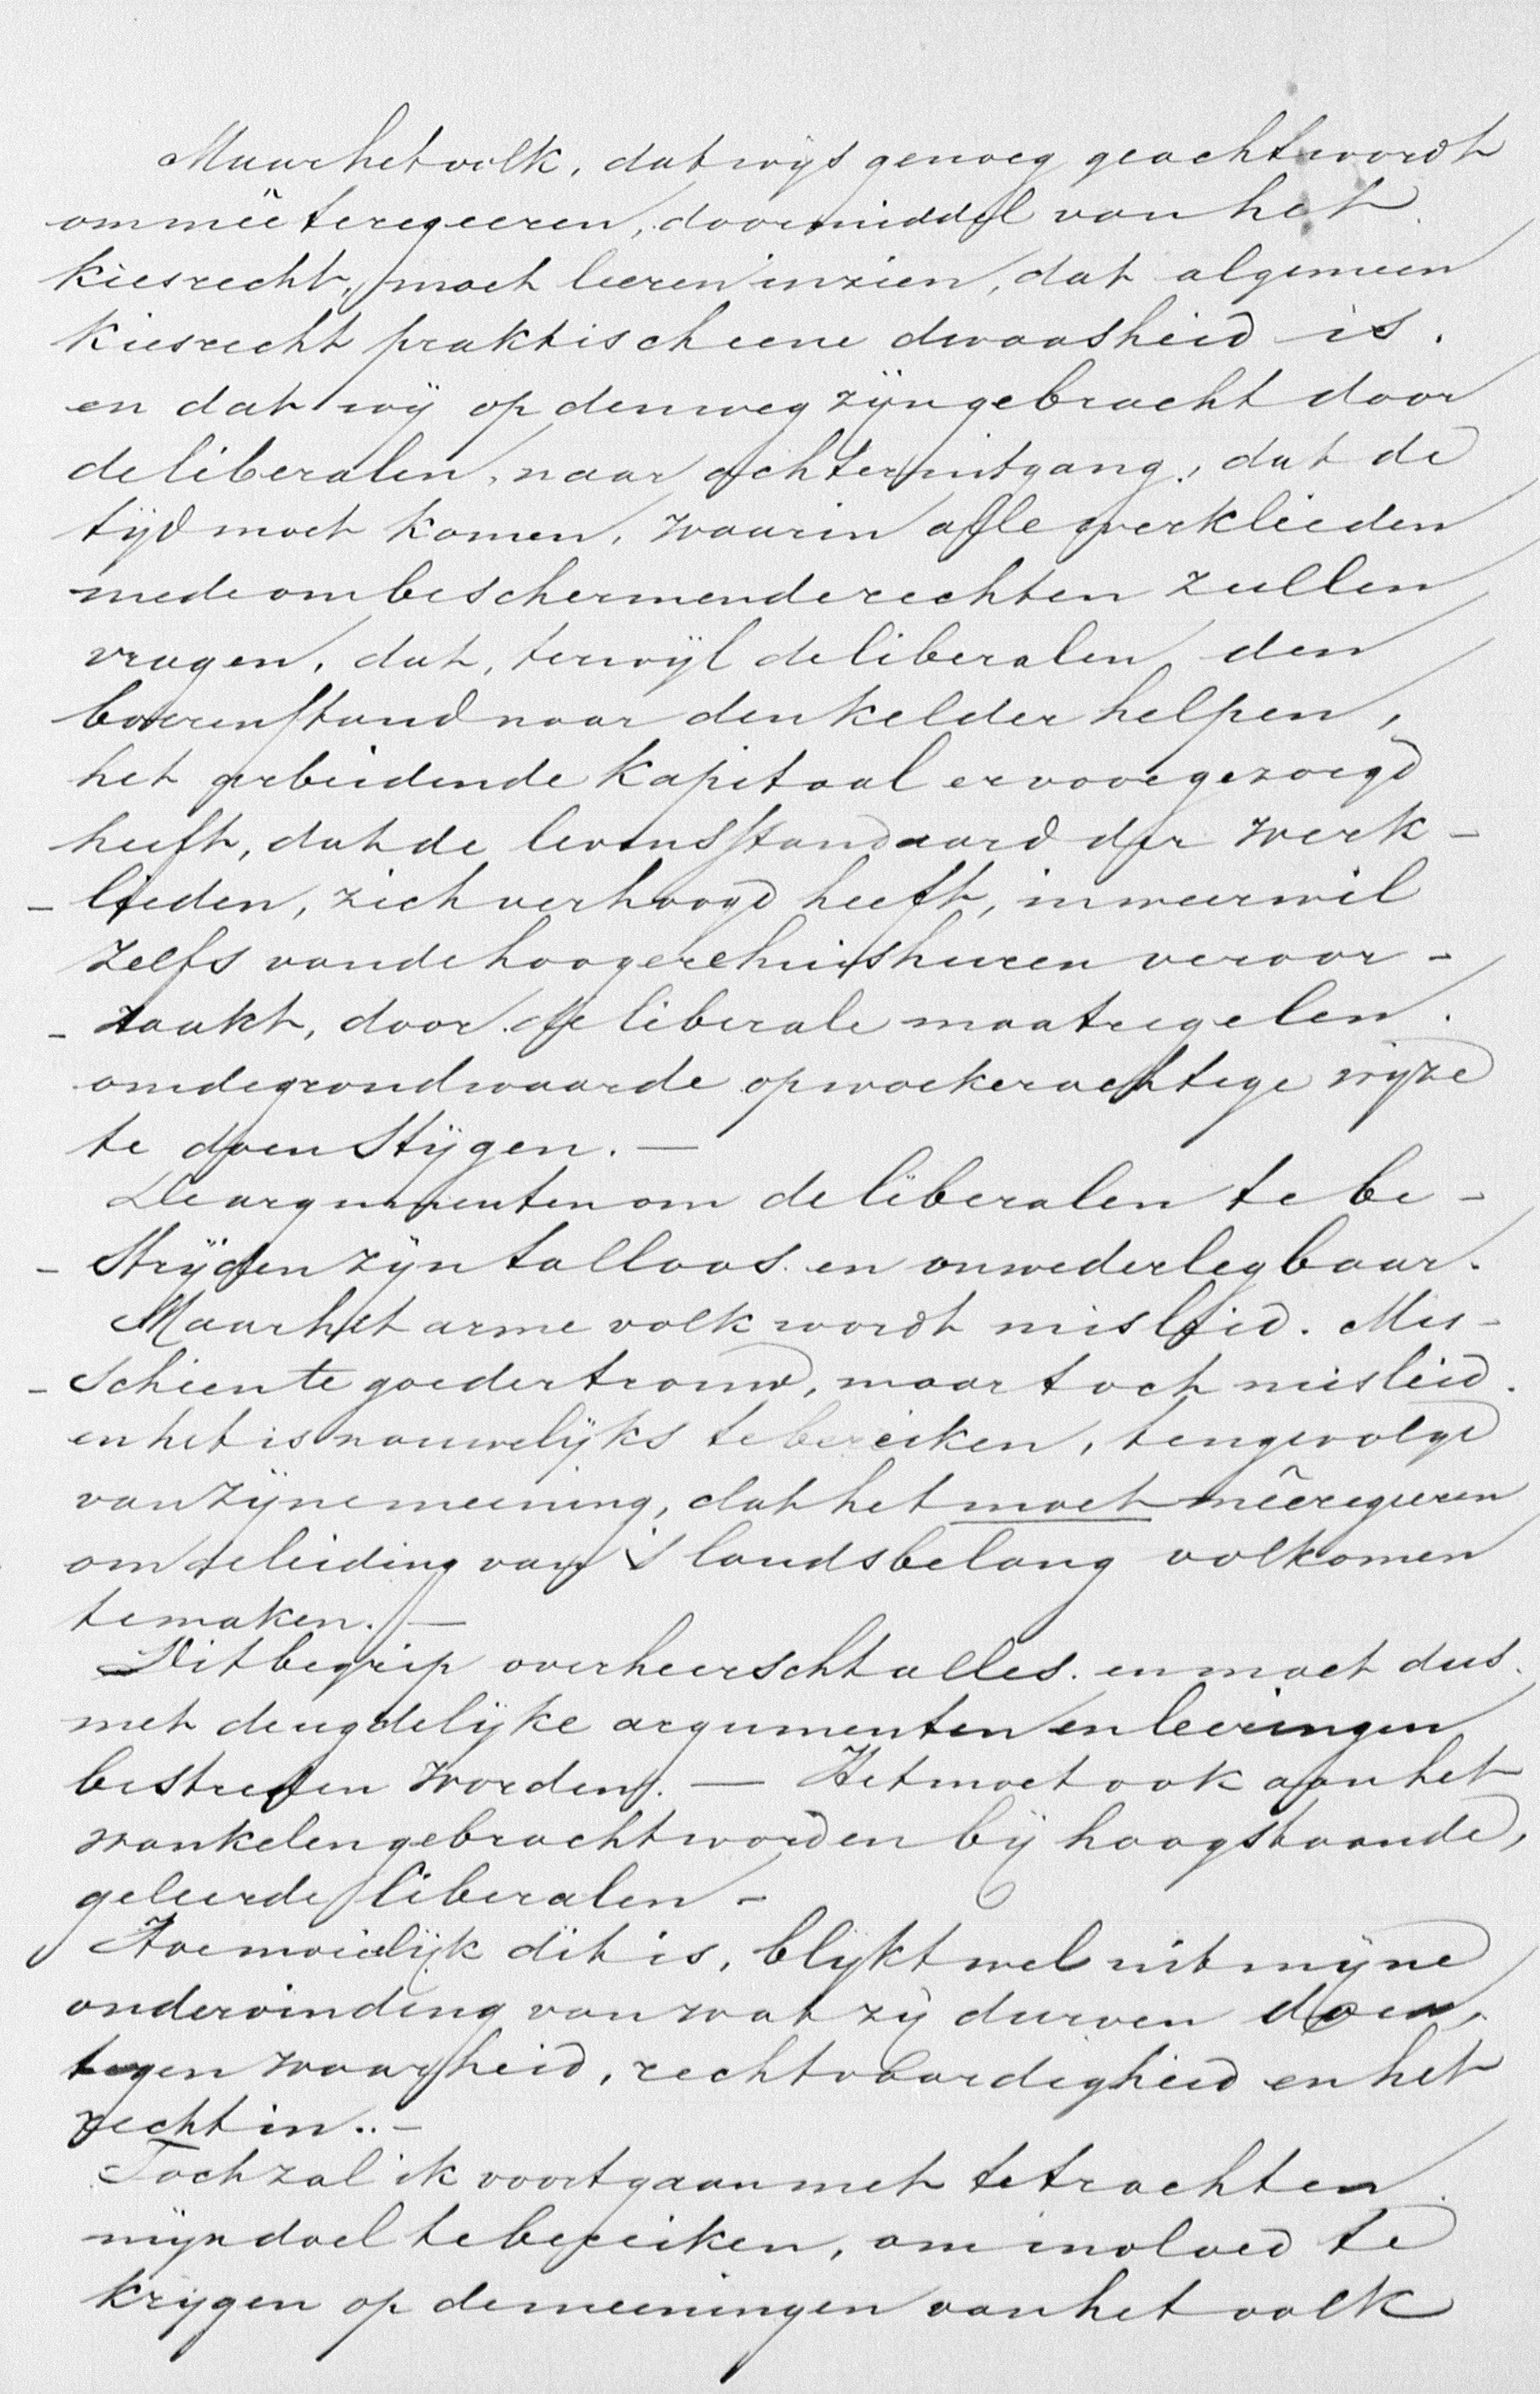 Maar het volk, dat wijs genoeg geacht wordt
om meê te regeeren, door middel van het
kiesrecht, moet leeren inzien, dat algemeen
kiesrecht praktisch eene dwaasheid is.
en dat wij op den weg zijn gebracht door
de liberalen, naar achteruitgang, dat de
tijd moet komen, waarin alle werklieden
mede om beschermende rechten zullen
vragen, dat, terwijl de liberalen den
boerenstand naar den kelder helpen,
het arbeidende kapitaal er voor gezorgd
heeft, dat de levensstandaard der werk-
- lieden, zich verhoogd heeft, in weerwil
zelfs van de hoogere huishuren veroor-
- zaakt, door de liberale maatregelen.
om de grondwaarde op woekerachtige wijze
te doen stijgen. —
De argumenten om de liberalen te be-
- strijden zijn talloos en onwederlegbaar.
Maar het arme volk wordt misleid. Mis-
- schien te goeder trouw, maar toch misleid.
en het is nauwelijks te bereiken, tengevolge
van zijne meening, dat het moet meêregeeren
om de leiding van 's landsbelang volkomen
te maken. —
Dit begrip overheerscht alles en moet dus
met deugdelijke argumenten en leeringen
bestreden worden. — Het moet ook aan het
wankelen gebracht worden bij hoogstaande,
geleerde liberalen -
Hoe moeielijk dit is, blijkt wel uit mijne
ondervinding van wat zij durven doen,
tegen waarheid, rechtvaardigheid en het
recht in.. -
Toch zal ik voortgaan met te trachten
mijn doel te bereiken, om invloed te
krijgen op de meeningen van het volk